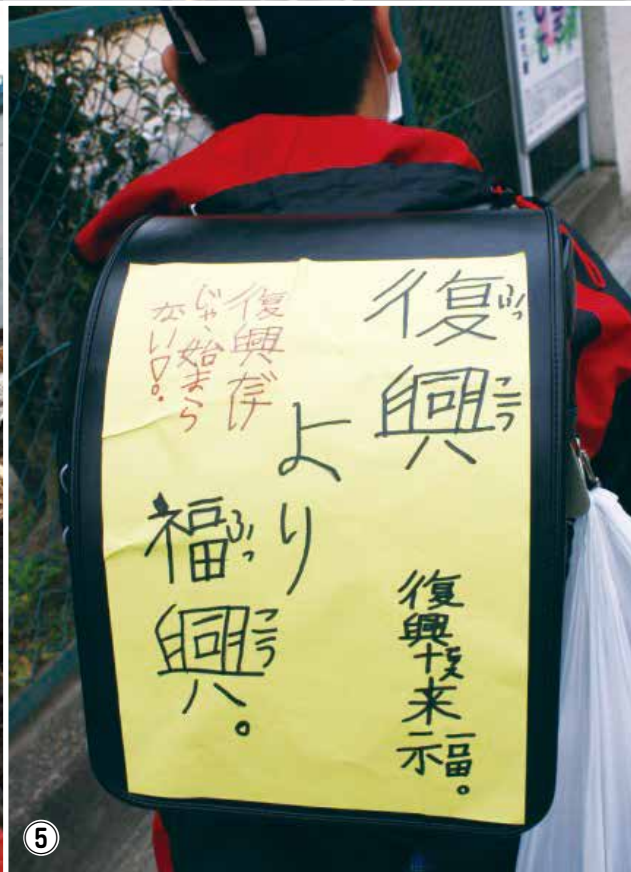 復興
ふっこう
より
福興。
ふっこう
復興だけ
じゃ、始まら
ない!。
復興 来福。
⑤